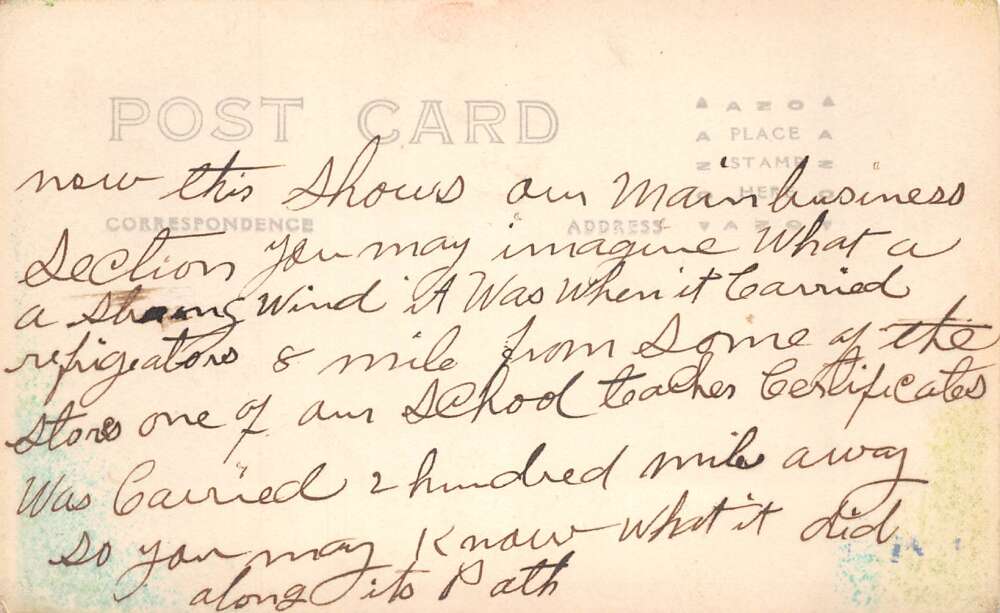 POST CARD
AZO
PLACE
STAMP
HERE
AZO
CORRESPONDENCE
ADDRESS
now this shows our Main business
Section you may imagine What a
a strong Wind it Was When it Carried
refrigeators 8 mile from some of the
stores one of our school teacher Certificates
Was Carried 2 hundred mile away
so you may Know What it did
along its Path